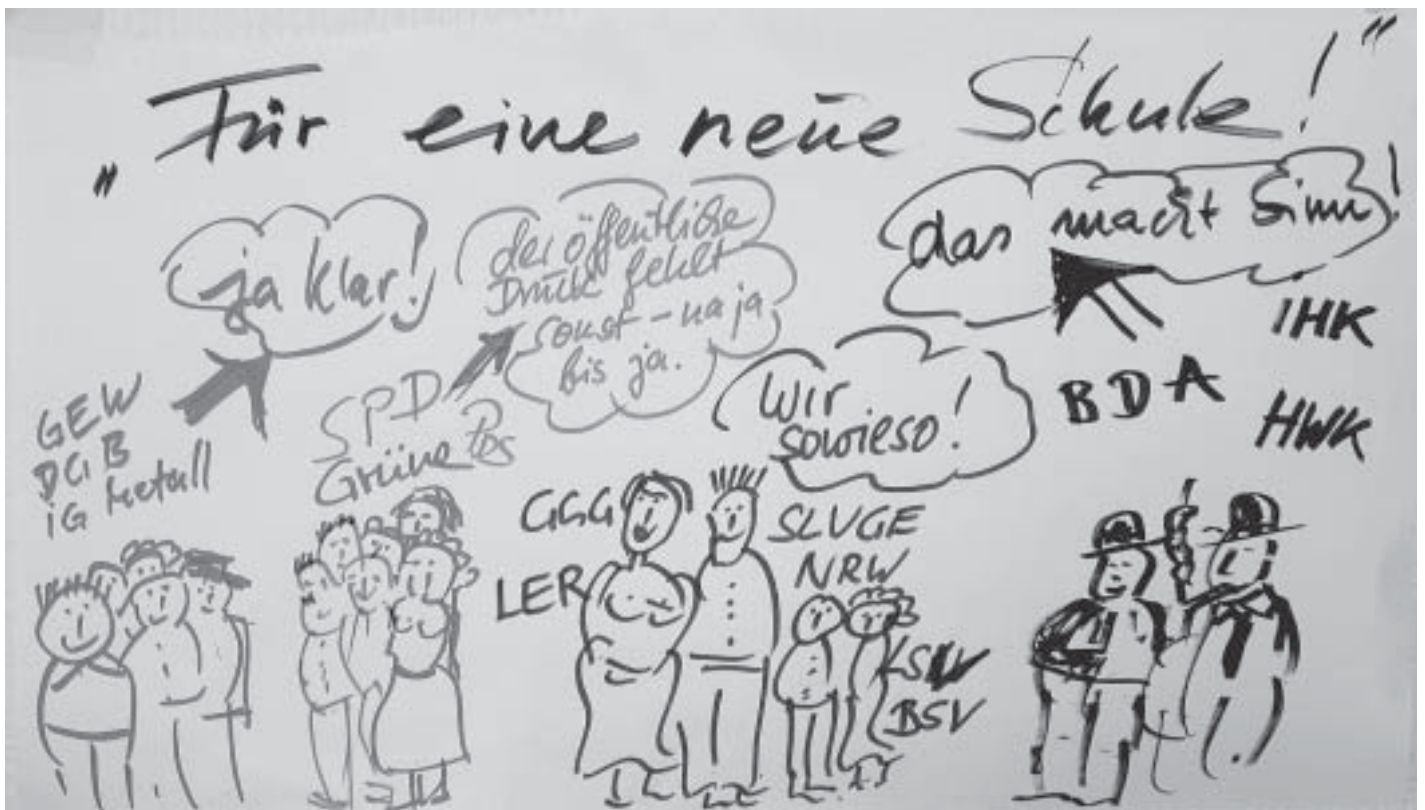 „Für eine neue Schule!"
ja klar!
der öffentliche
Druck fehlt
sonst – na ja
bis ja.
das macht Sinn!
Wir
sowieso!
GEW
DGB
iG Metall
SPD
Grüne
BDA
IHK
HWK
GGG
LER
SLVGE
NRW
BSV